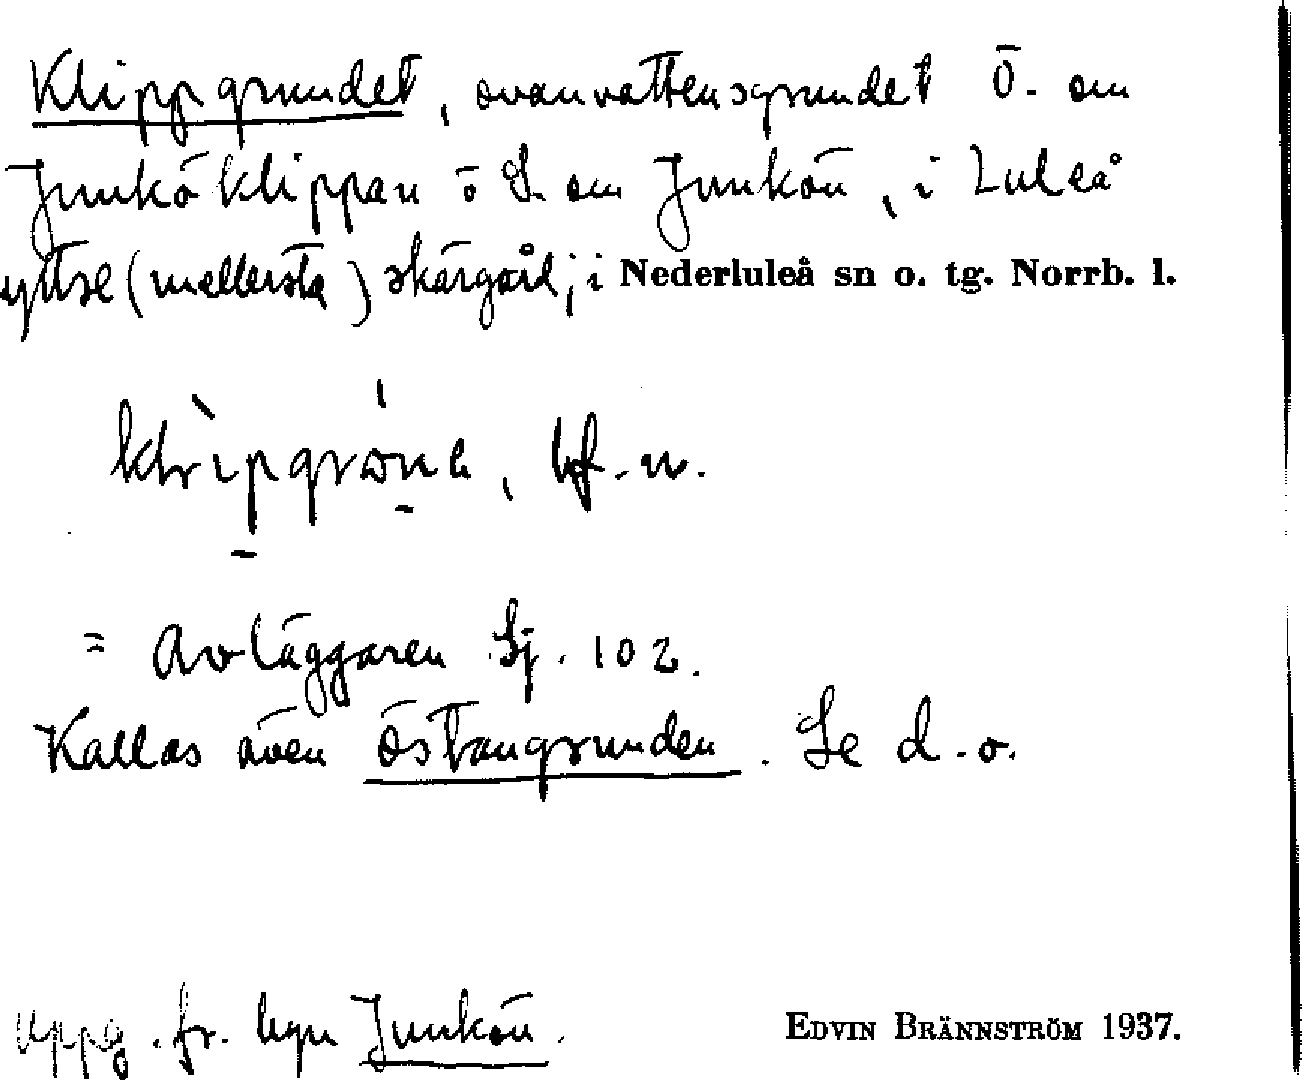 Klippgrundet, ovanvattensgrundet Ö. om
Junköklippan ö S. om Junkön, i Luleå
yttre (mellersta) skärgård; i Nederluleå sn o. tg. Norrb. l.
bf. n.
= Avläggaren Sj. 102.
Kallas även östangrunden. Se d.o.
Uppg. fr. byn Junkön.
EDVIN BRÄNNSTRÖM 1937.